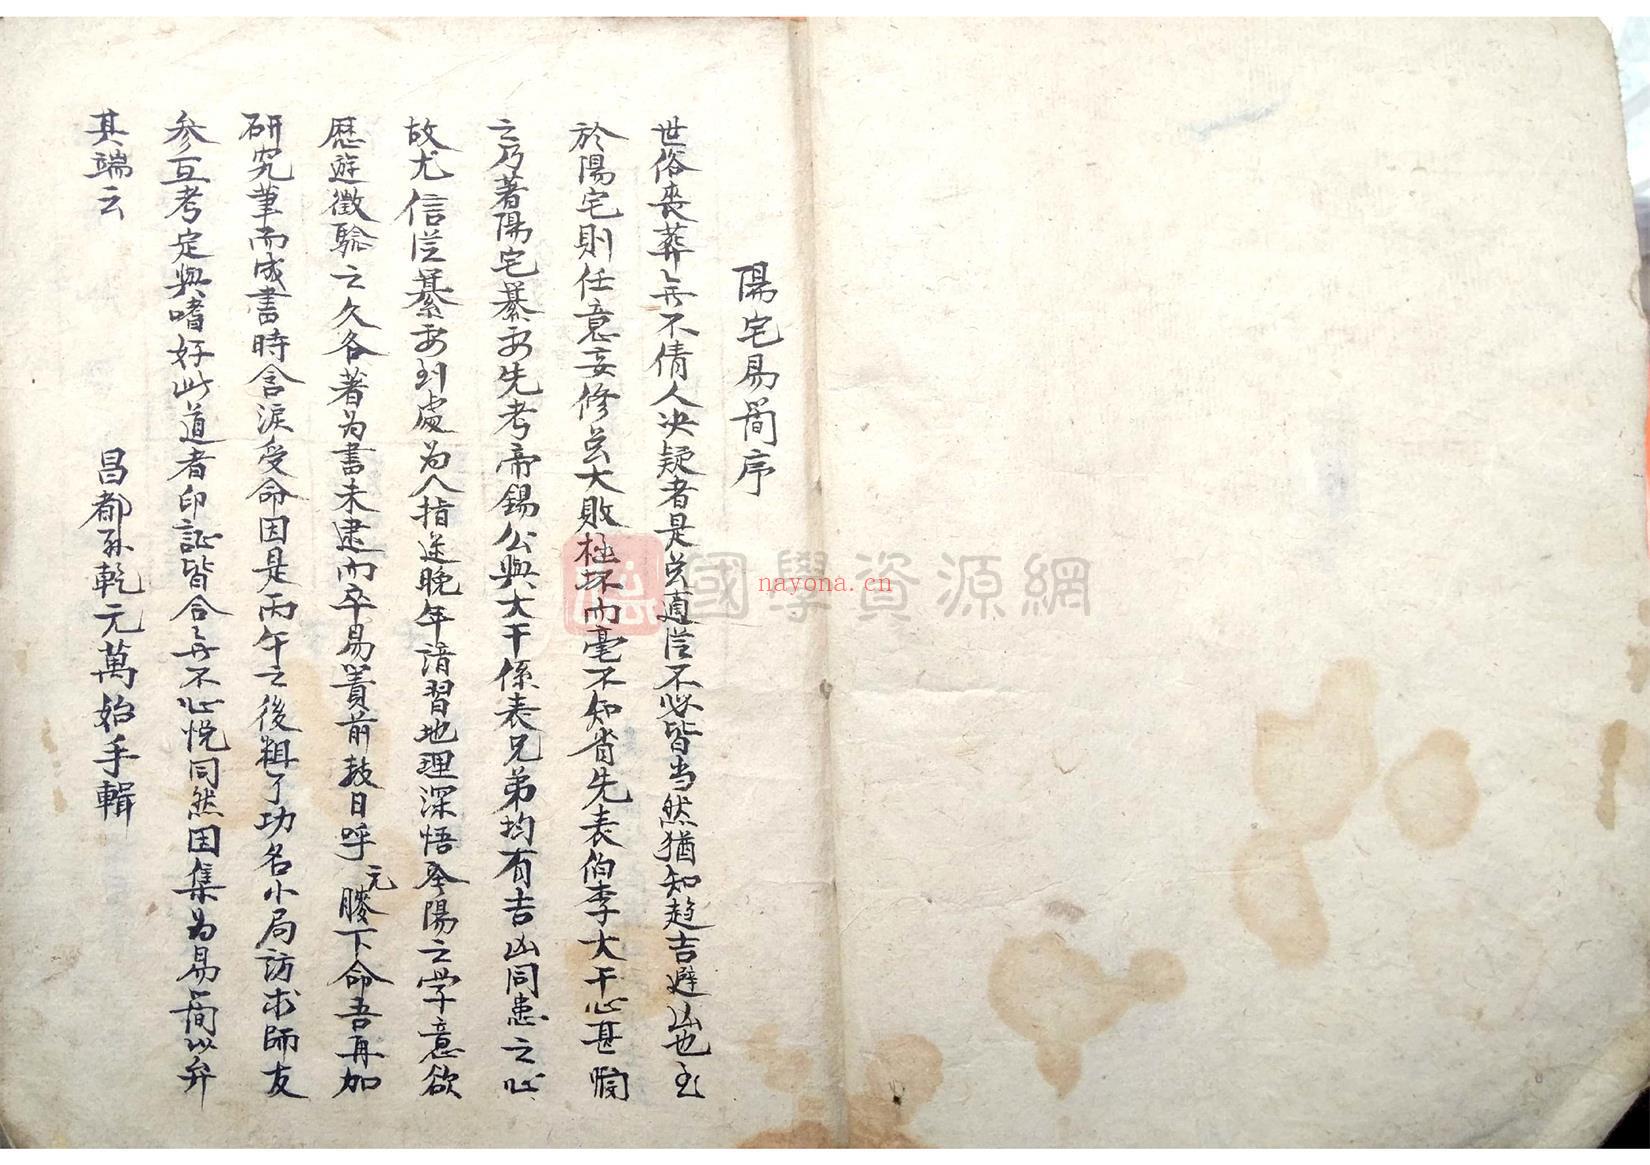 陽宅易簡序
世俗喪葬无不倩人决疑者是岂適从不必皆当然猶知趋吉避凶也至
於陽宅則任意妄修岂大敗極坏而毫不知省先表伯李大干心甚憫
之乃著陽宅纂要先考帝錫公與大干係表兄弟均有吉凶同患之心
故尤信从纂要到處为人指迷晚年諳習地理深悟陽之学意欲
歷遊徵驗之久各著为書未逮而卒易簀前数日呼元膝下命吾再加
研究筆而成書時含淚受命因是丙午之後粗了功名小局訪求師友
参互考定與嗜好此道者印証皆合无不心悦同然因集为易簡以弁
其端云
昌都孫乾元萬始手輯
國學資源網
nayona.cn